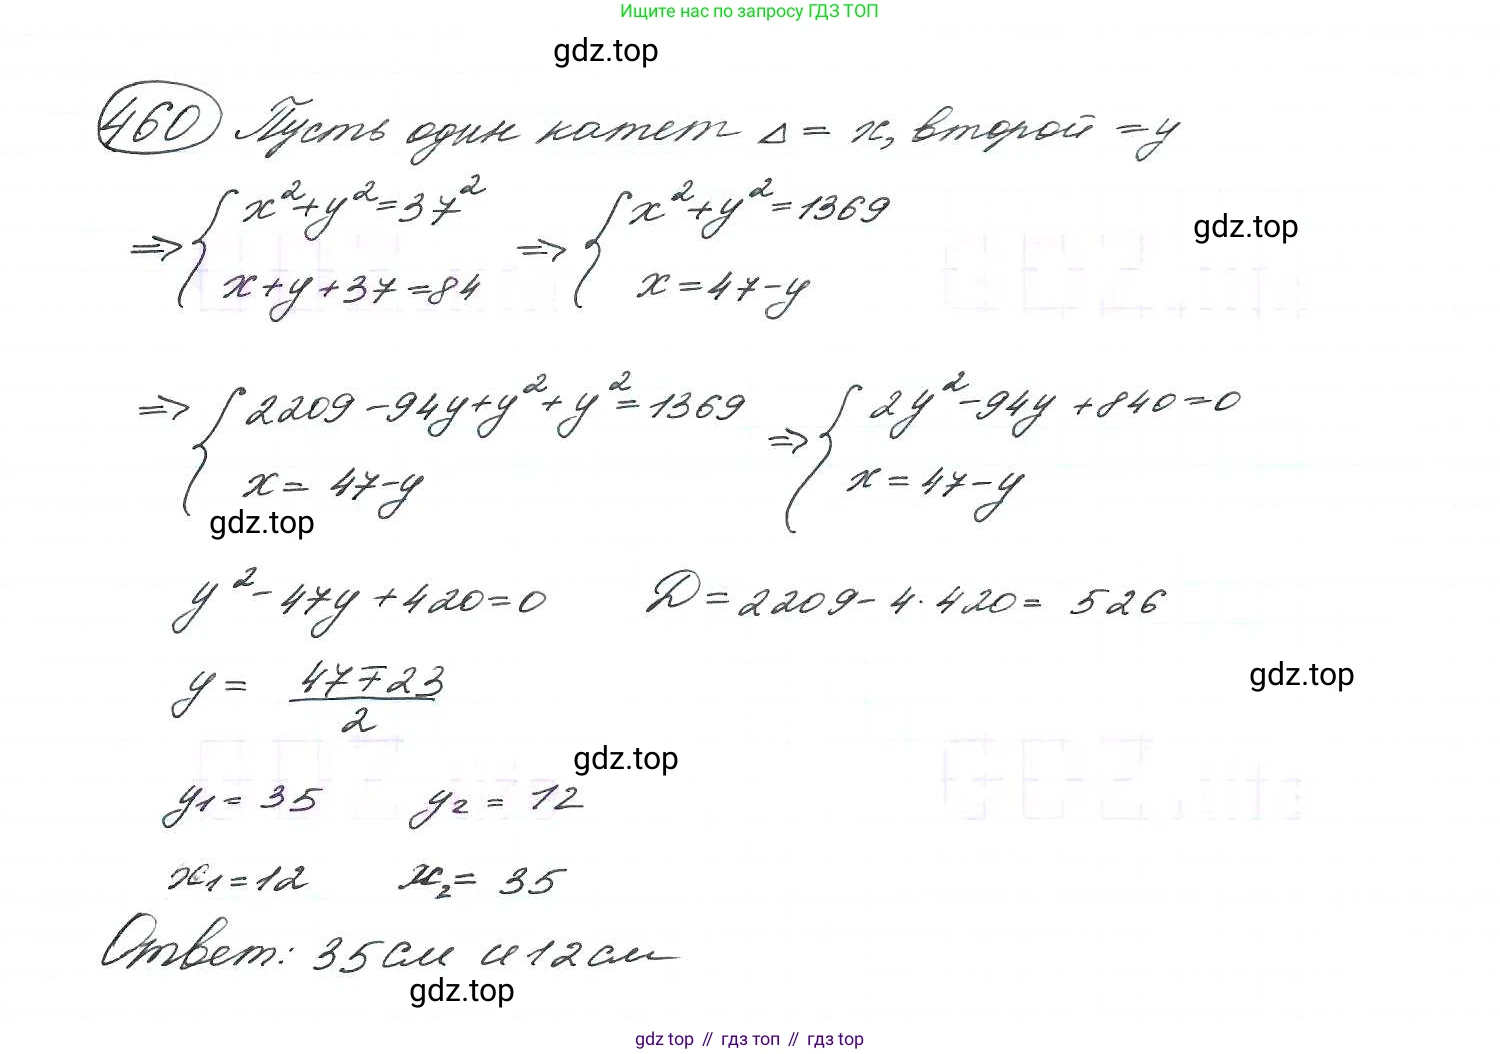 Ищите нас по запросу ГДЗ ТОП
gdz.top
460 Пусть один катет Δ = x, второй = y
⇒ { x²+y²=37² ⇒ { x²+y²=1369
x+y+37=84 x=47-y
gdz.top
⇒ { 2209-94y+y²+y²=1369 ⇒ { 2y²-94y+840=0
x= 47-y x=47-y
gdz.top
y²-47y+420=0 D=2209-4·420= 526
y= (47∓23)/2
gdz.top
gdz.top
y₁=35 y₂=12
x₁=12 x₂=35
Ответ: 35см и 12см
gdz.top
gdz top // гдз топ // gdz top